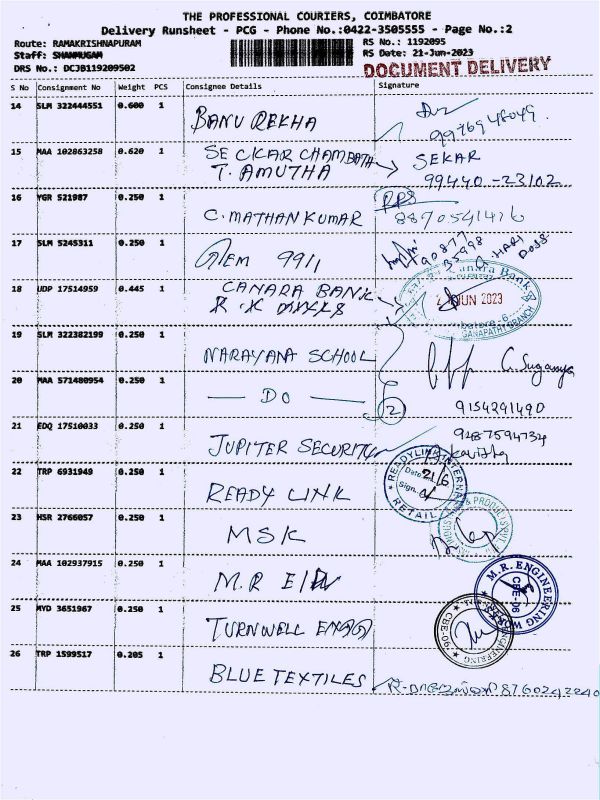 THE PROFESSIONAL COURIERS, COIMBATORE
Delivery Runsheet - PCG - Phone No.:0422-3505555 - Page No.:2
Route: RAMAKRISHNAPURAM
Staff: SHANMUGAM
DRS No.: DCJB119209502
RS No.: 1192095
RS Date: 21-Jun-2023
DOCUMENT DELIVERY
S No Consignment No Weight PCS Consignee Details Signature
14 SLM 322444551 0.600 1 BANU REKHA
15 MAA 102863258 0.620 1 SECKAR CHAMBATH SEKAR
T. AMUTHA 99440-23102
16 YGR 521987 0.250 1 C. MATHAN KUMAR
17 SLM 5245311 0.250 1 9911
HARI
DOSS
18 UDP 17514959 0.445 1 CANARA BANK
Canara Bank
JUN 2023
GANAPATHY BRANCH
19 SLM 322382199 0.250 1 NARAYANA SCHOOL G. Suganya
20 MAA 571480954 0.250 1 — DO — 2 9154291490
21 EDQ 17510033 0.250 1 JUPITER SECURITY 9487594734
Kavitha
22 TRP 6931949 0.250 1 READY LINK
READYLINK INTERNATIONAL
Date 21/6
Sign.
RETAIL
23 HSR 2766057 0.250 1 MSK
24 MAA 102937915 0.250 1 M.R
M.R. ENGINEERING WORKS
CBE-06
25 MYD 3651967 0.250 1 TURNWELL ENGG
ENGINEERING
26 TRP 1599517 0.205 1 BLUE TEXTILES 8760242240